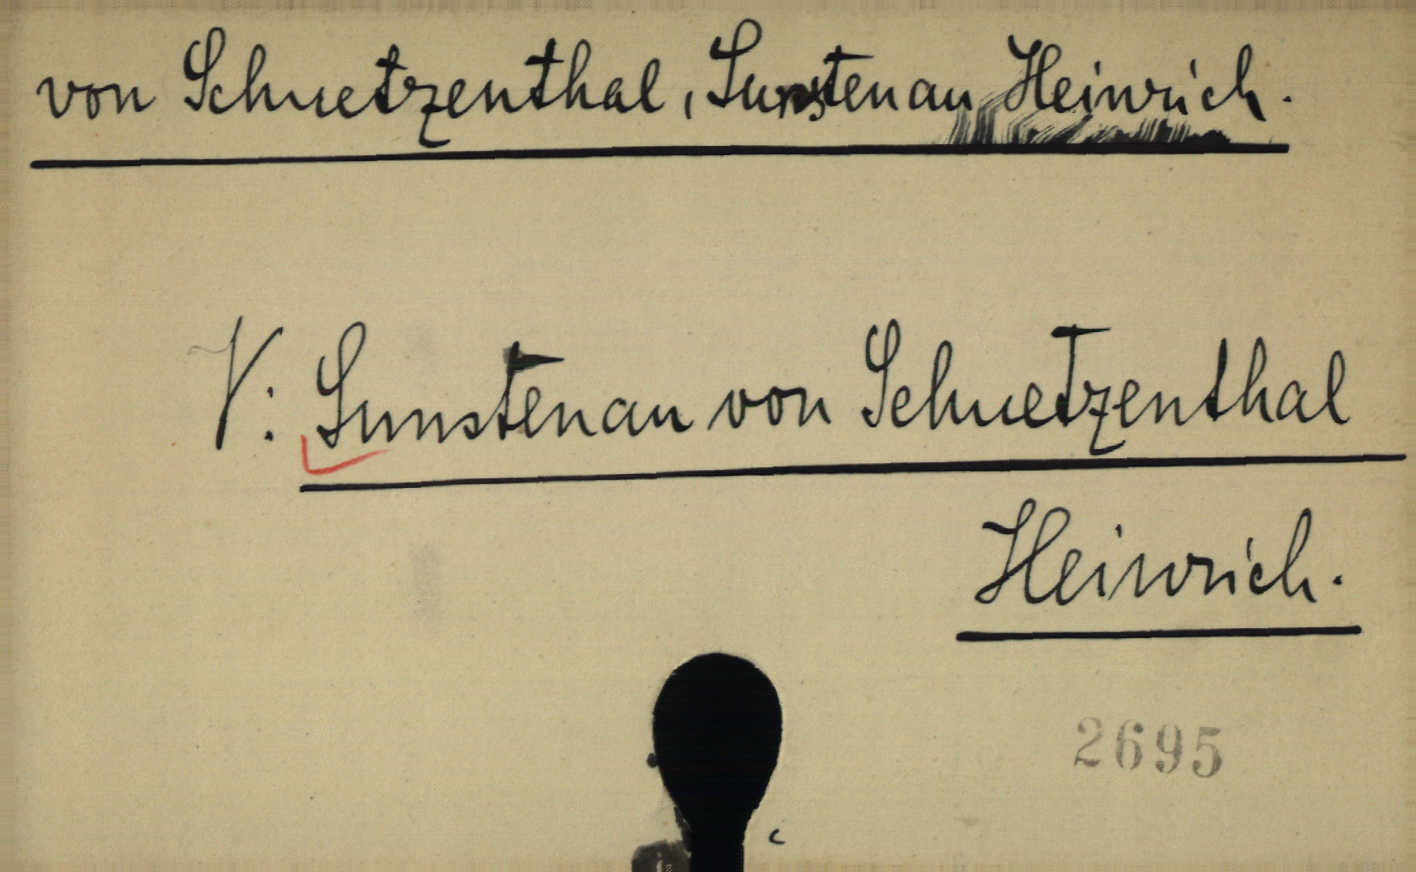 von Schuetzenthal, Sunstenau Heinrich.
V: Sunstenau von Schuetzenthal
Heinrich.
2695